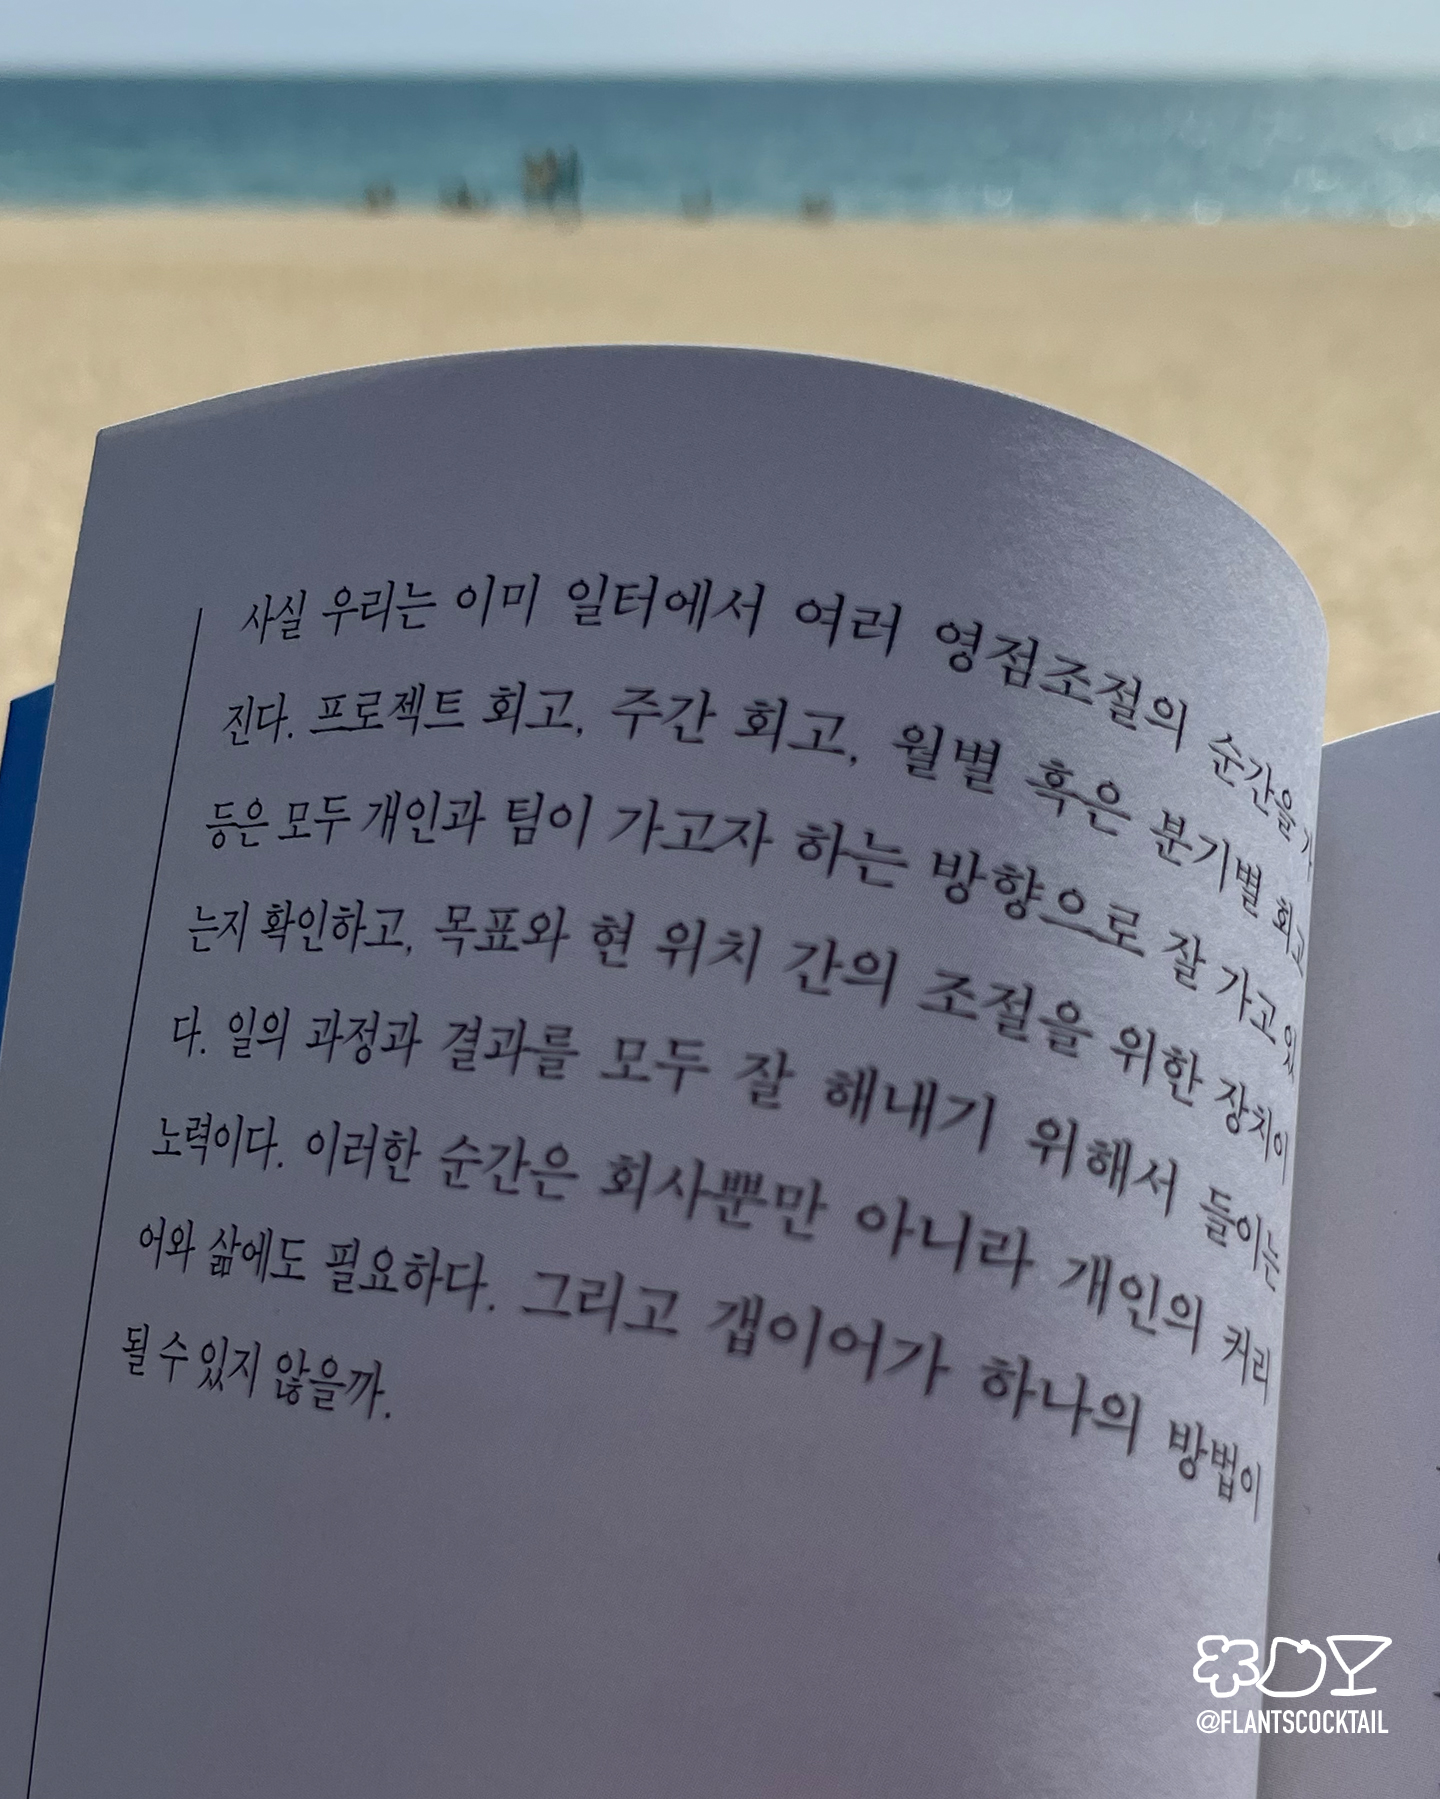 사실 우리는 이미 일터에서 여러 영점조절의 순간을 가
진다. 프로젝트 회고, 주간 회고, 월별 혹은 분기별 회고
등은 모두 개인과 팀이 가고자 하는 방향으로 잘 가고 있
는지 확인하고, 목표와 현 위치 간의 조절을 위한 장치이
다. 일의 과정과 결과를 모두 잘 해내기 위해서 들이는
노력이다. 이러한 순간은 회사뿐만 아니라 개인의 커리
어와 삶에도 필요하다. 그리고 갭이어가 하나의 방법이
될 수 있지 않을까.
@FLANTSCOCKTAIL